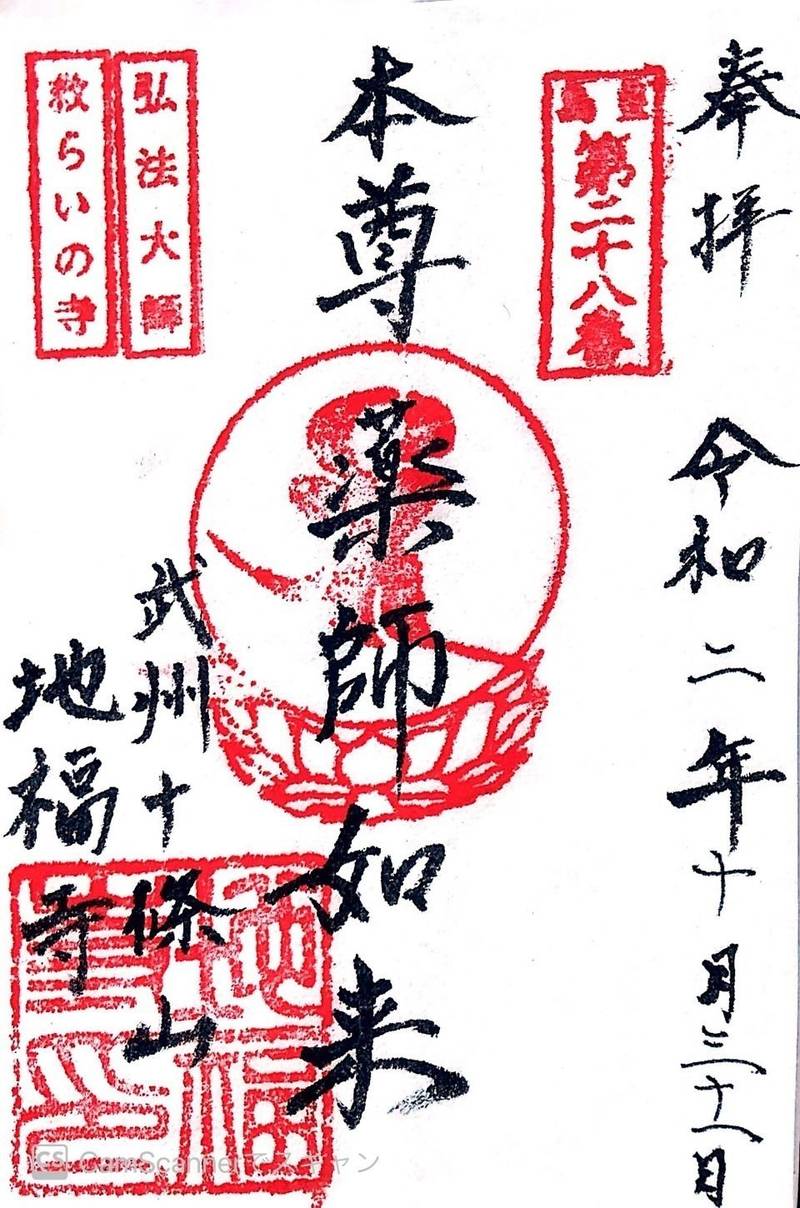 奉拝
令和二年十月三十一日
第二十八番
本尊
薬師如来
武州十條山
地福寺
弘法大師
救らいの寺
CamScannerでスキャン